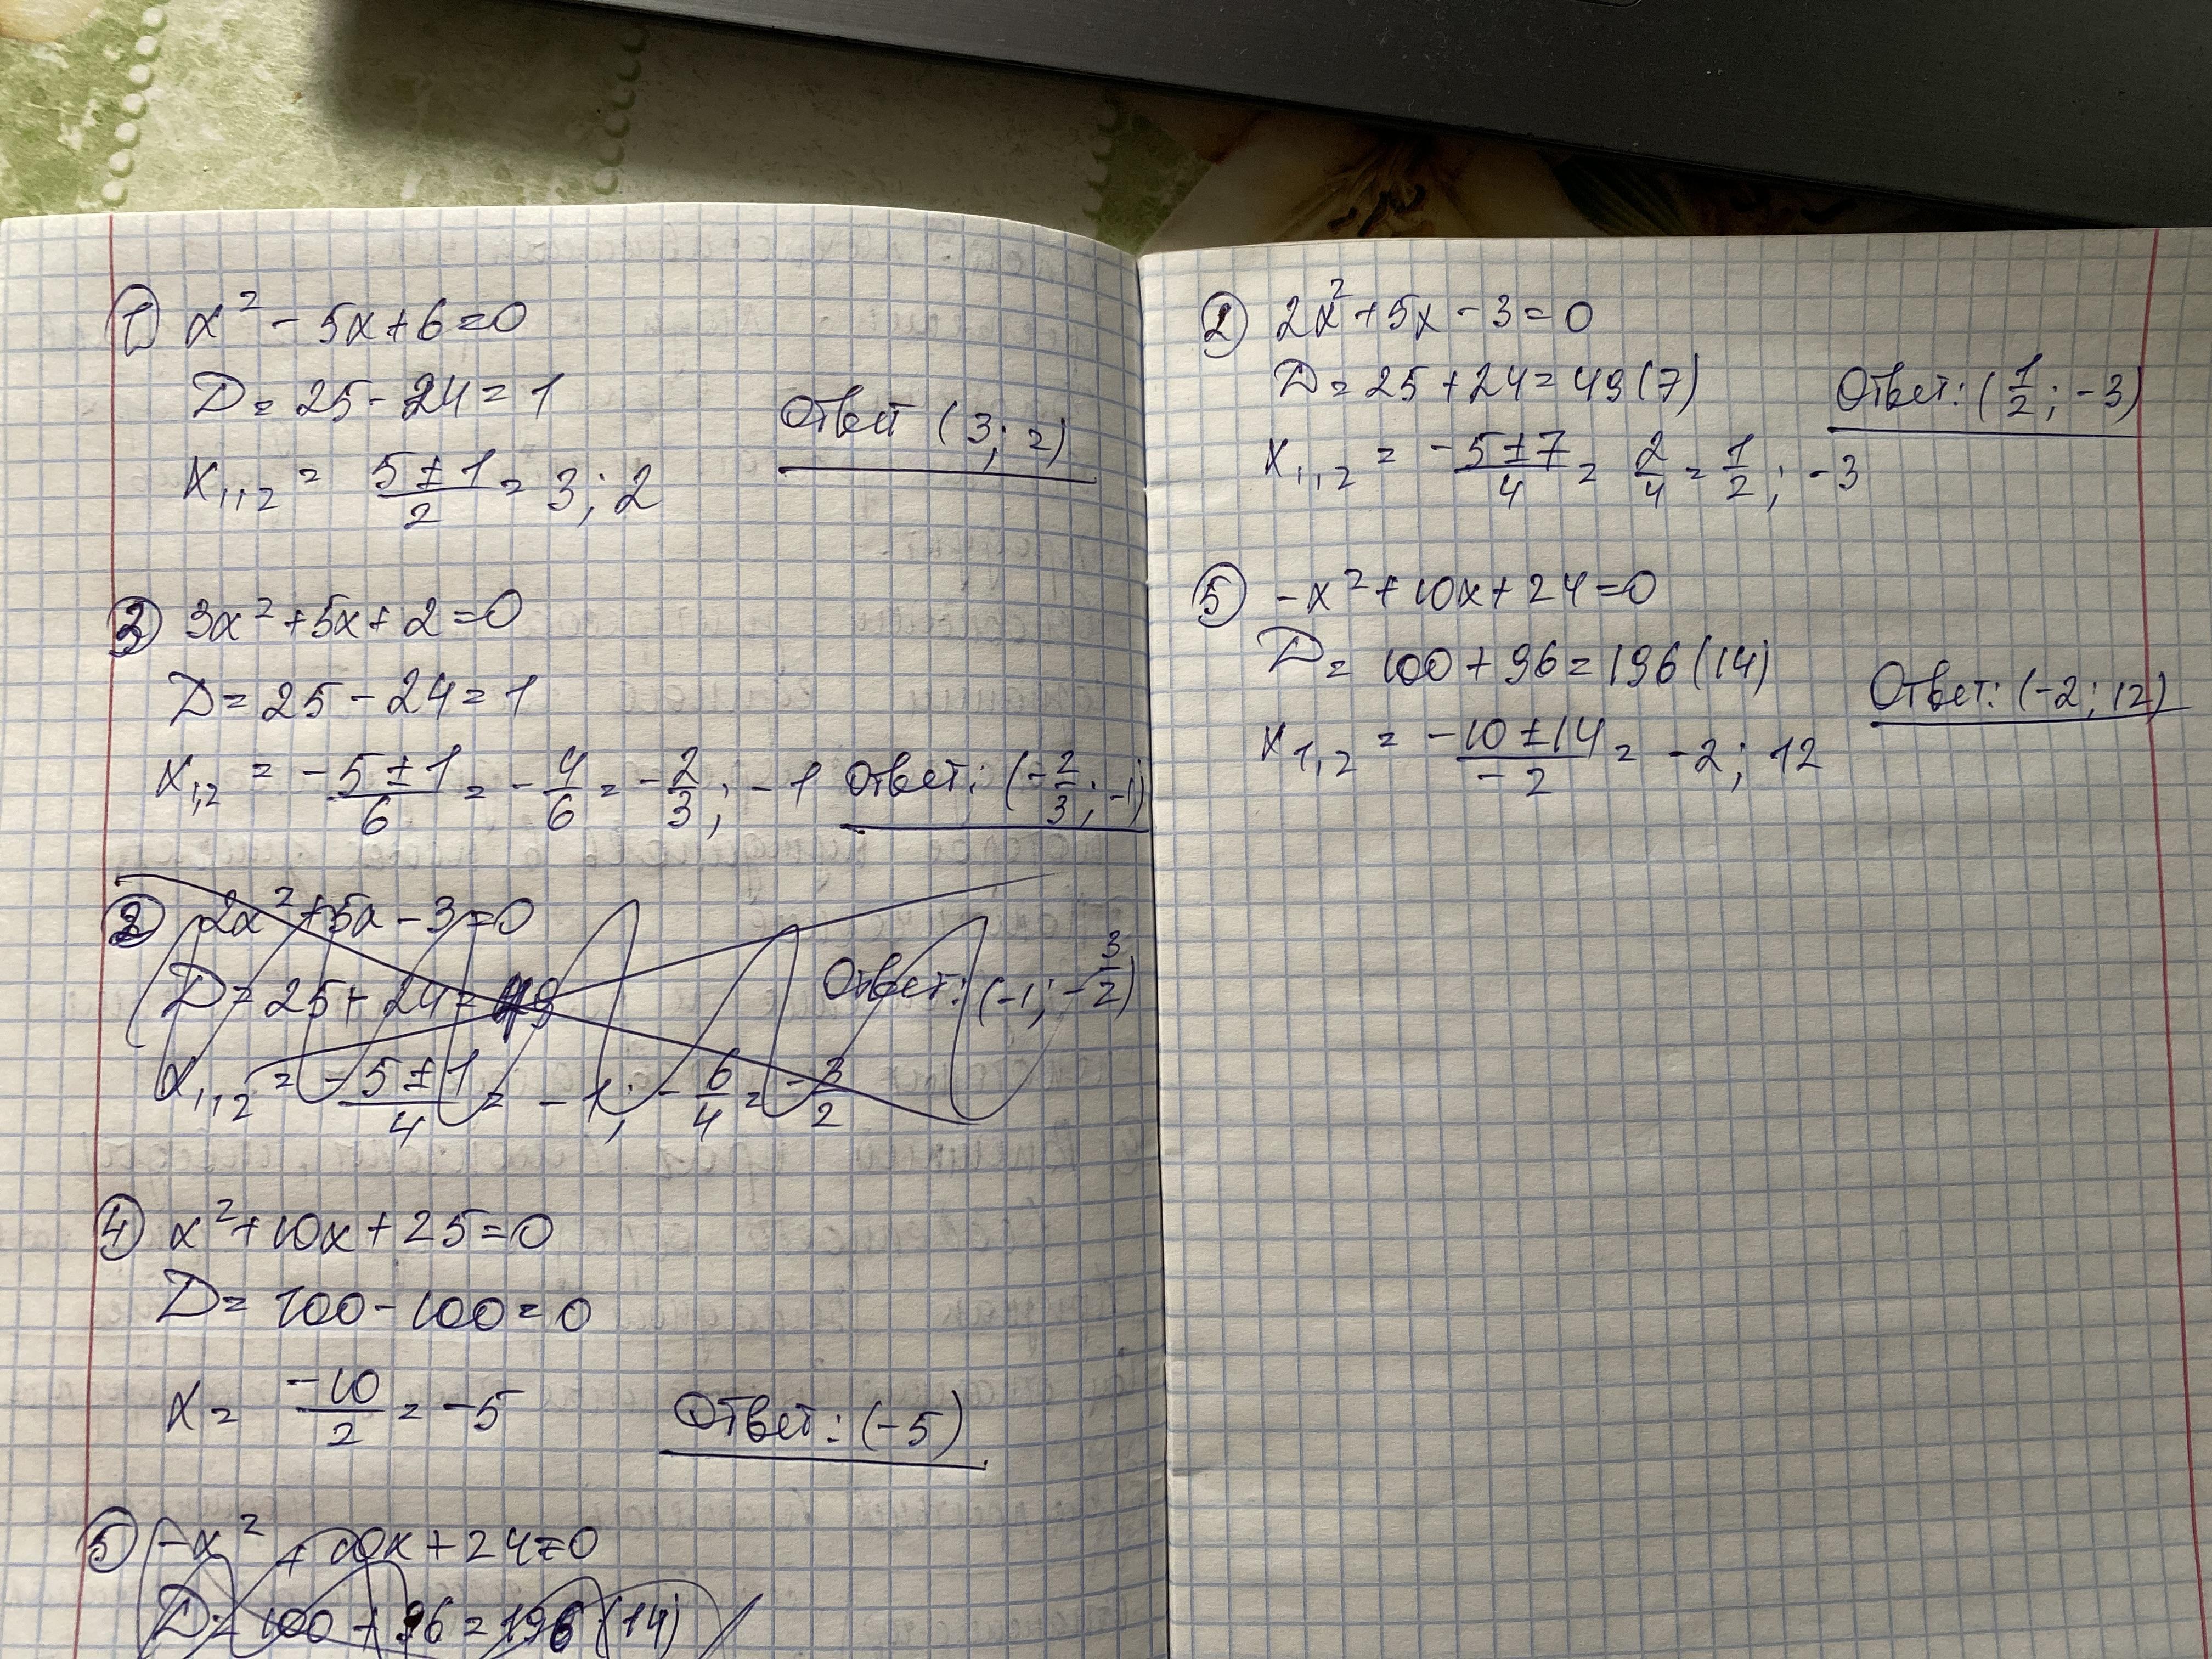 1) x² - 5x + 6 = 0
D = 25 - 24 = 1
x₁,₂ = (5 ± 1)/2 = 3; 2
Ответ (3; 2)
3) 3x² + 5x + 2 = 0
D = 25 - 24 = 1
x₁,₂ = (-5 ± 1)/6 = -4/6 = -2/3; -1 Ответ: (-2/3; -1)
2) 2x² + 5x - 3 = 0
D = 25 + 24 = 49
x₁,₂ = (-5 ± 1)/4 = -1; -6/4 = -3/2
Ответ: (-1; -3/2)
4) x² + 10x + 25 = 0
D = 100 - 100 = 0
x = -10/2 = -5
Ответ: (-5)
5) -x² + 10x + 24 = 0
D = 100 + 96 = 196 (14)
2) 2x² + 5x - 3 = 0
D = 25 + 24 = 49 (7)
x₁,₂ = (-5 ± 7)/4 = 2/4 = 1/2; -3
Ответ: (1/2; -3)
5) -x² + 10x + 24 = 0
D = 100 + 96 = 196 (14)
x₁,₂ = (-10 ± 14)/-2 = -2; 12
Ответ: (-2; 12)